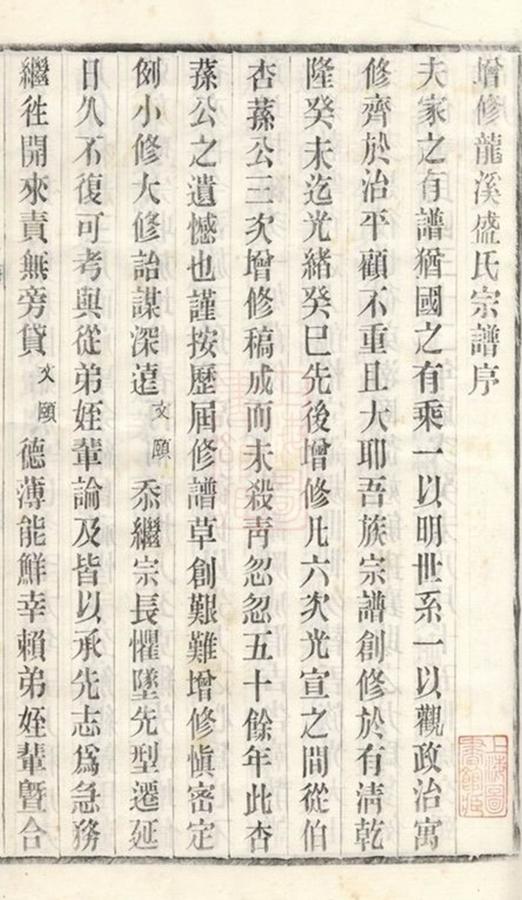 增修龍溪盛氏宗譜序
夫家之有譜猶國之有乘一以明世系一以觀政治寓
修齊於治平顧不重且大耶吾族宗譜創修於有淸乾
隆癸未迄光緒癸巳先後增修凡六次光宣之間從伯
杏蓀公三次增修稿成而未殺靑忽忽五十餘年此杏
蓀公之遺憾也謹按歷屆修譜草創艱難增修愼密定
例小修大修詒謀深遠文頤忝繼宗長懼墜先型遷延
日久不復可考與從弟姪輩論及皆以承先志爲急務
繼徃開來責無旁貸文頤德薄能鮮幸賴弟姪輩曁合
上海圖
書館藏